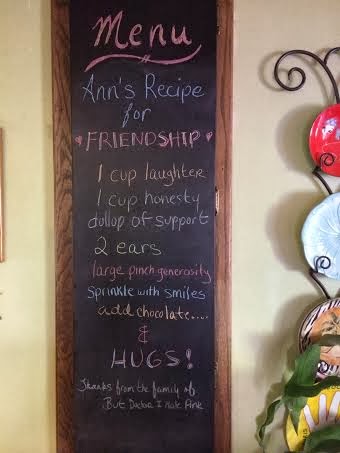 Menu
Ann's Recipe
for
FRIENDSHIP
1 cup laughter
1 cup honesty
dollop of support
2 ears
large pinch generosity
sprinkle with smiles
add chocolate.....
&
HUGS!
Thanks from the family of
But Doctor I Hate Pink